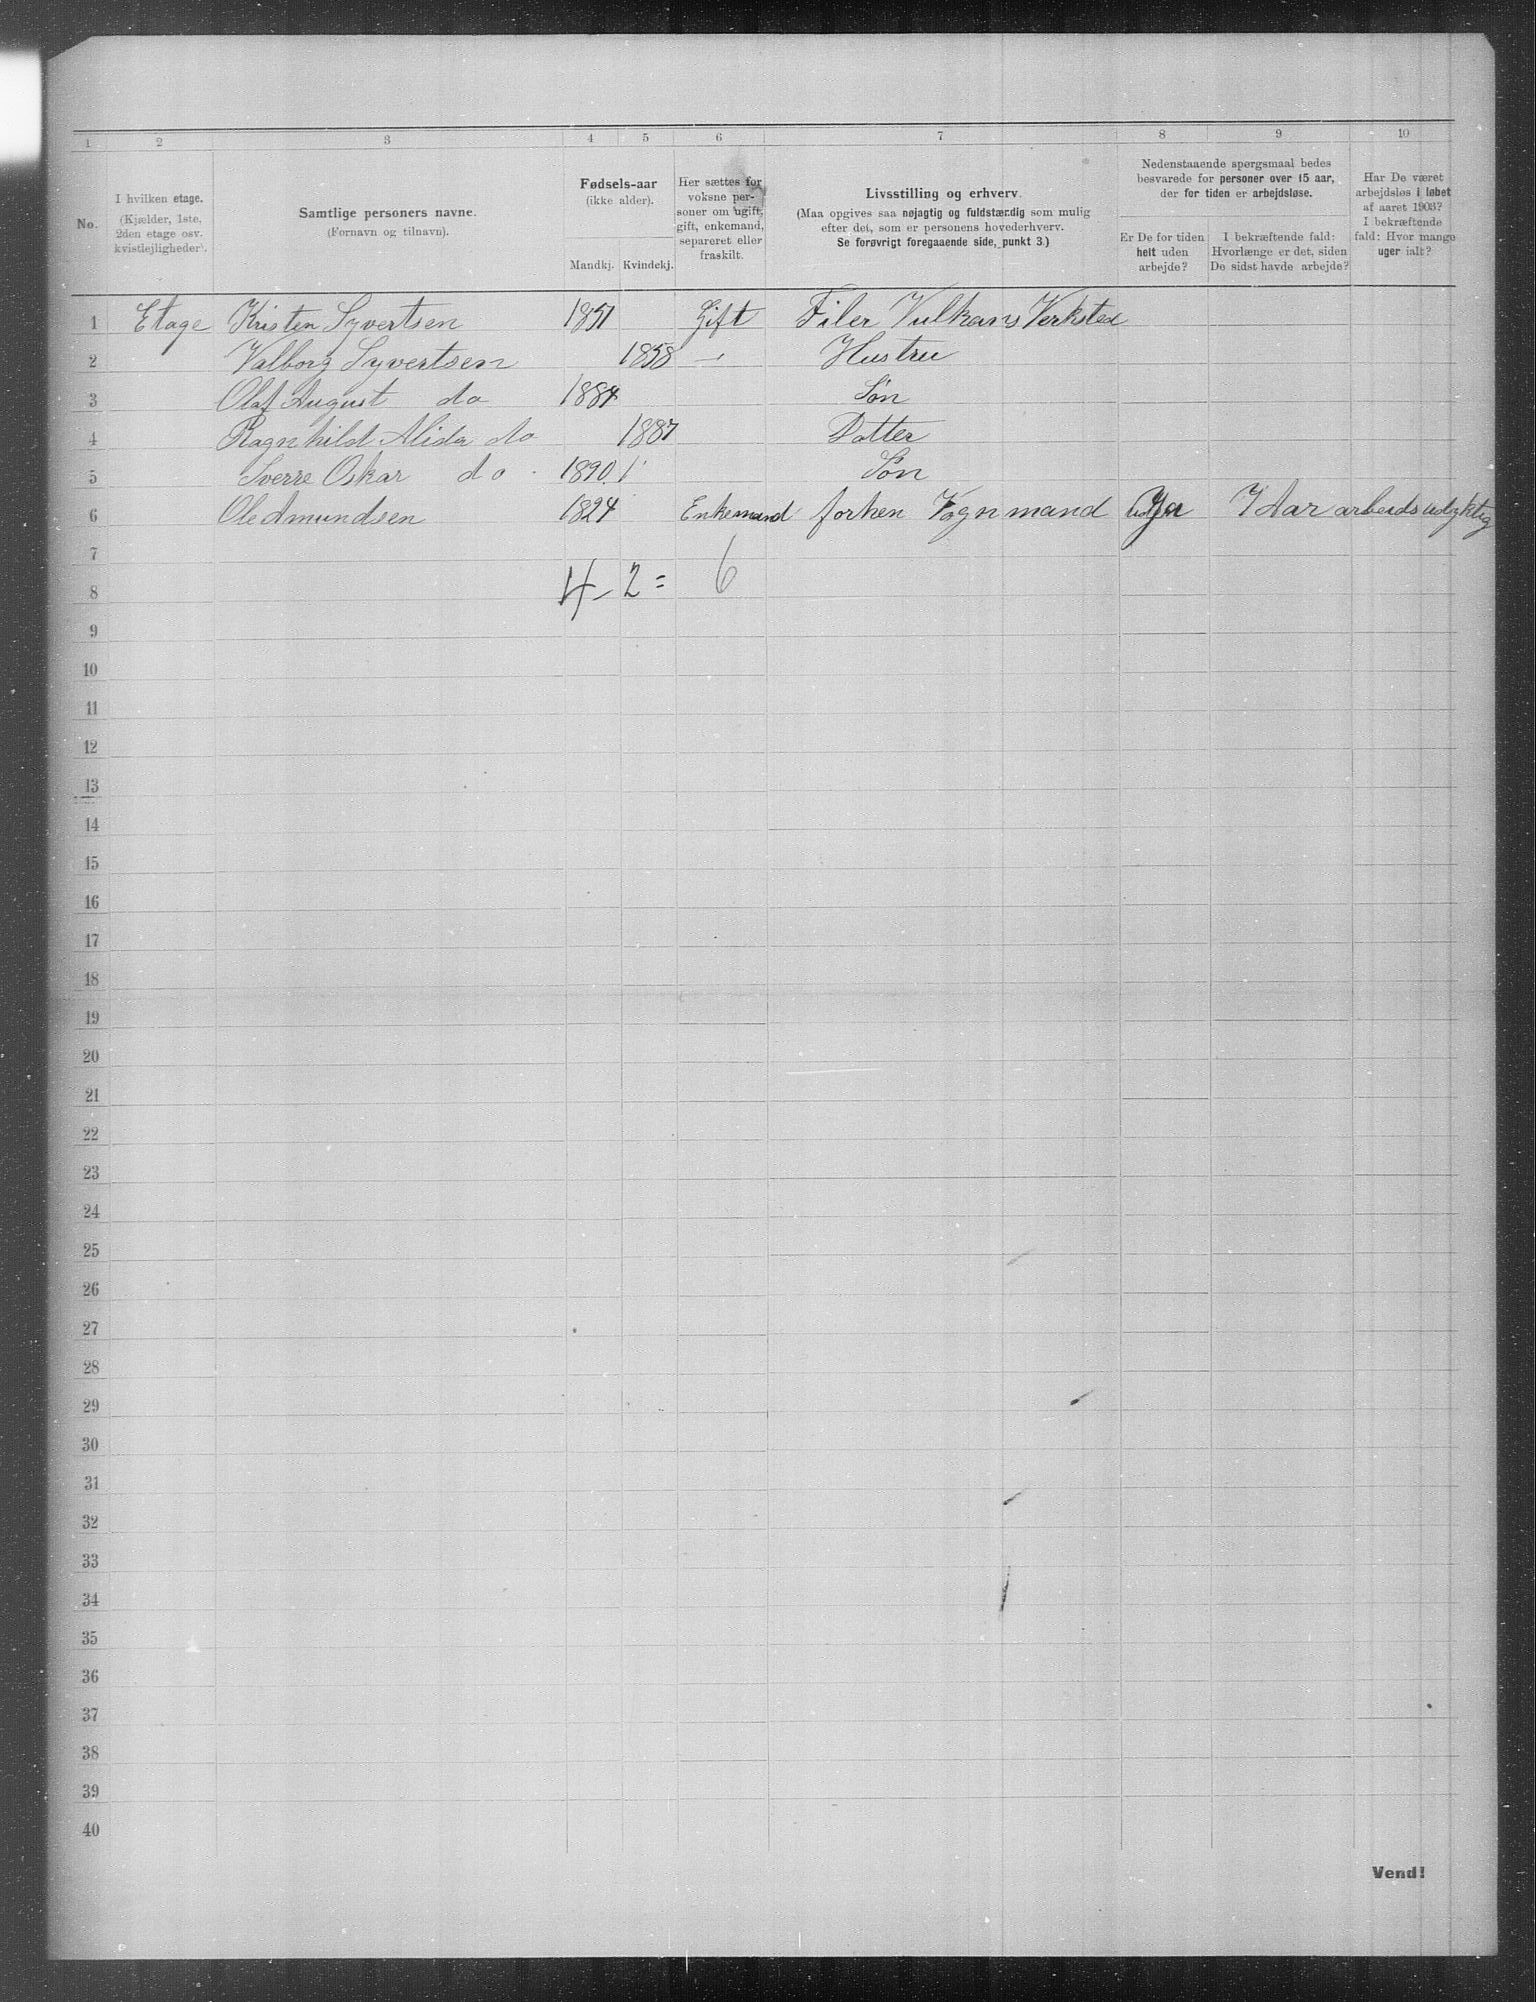 1 2 3 4 5 6 7 8 9 10
No.
I hvilken etage.
(Kjælder, 1ste,
2den etage osv.
kvistleiligheder).
Samtlige personers navne.
(Fornavn og tilnavn).
Fødsels-aar
(ikke alder).
Mandkj. Kvindekj.
Her sættes for
voksne per-
soner om ugift,
gift, enkemand,
separeret eller
fraskilt.
Livsstilling og erhverv.
(Maa opgives saa nøjagtig og fuldstændig som mulig
efter det, som er personens hovederhverv.
Se forøvrigt foregaaende side, punkt 3.)
Nedenstaaende spørgsmaal bedes
besvarede for personer over 15 aar,
der for tiden er arbejdsløse.
Er De for tiden
helt uden
arbejde?
I bekræftende fald:
Hvorlænge er det, siden
De sidst havde arbejde?
Har De været
arbejdsløs i løbet
af aaret 1903?
I bekræftende
fald: Hvor mange
uger ialt?
1 Etage Kristen Syvertsen 1851 Gift Filer Vulkans Verksted
2 Valborg Syvertsen 1858 – Hustru
3 Olaf August do 1884 Søn
4 Ragnhild Alida do 1887 Datter
5 Sverre Oskar do 1890 Søn
6 Ole Amundsen 1824 Enkemand forhen Vognmand Ja 7 Aar arbeidsudyktig
7
8 4 – 2 = 6
9
10
11
12
13
14
15
16
17
18
19
20
21
22
23
24
25
26
27
28
29
30
31
32
33
34
35
36
37
38
39
40
Vend!